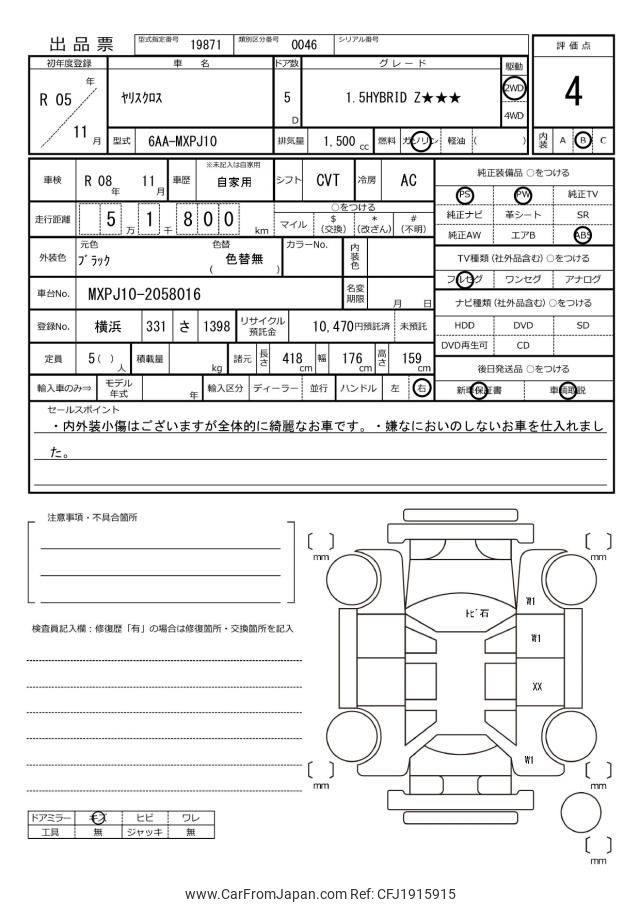 出品票
型式指定番号 19871 類別区分番号 0046 シリアル番号
評価点
4
内装 A B C
初年度登録 車名 ドア数 グレード 駆動
R 05 年 11 月
ヤリスクロス
5 D
1.5HYBRID Z★★★
2WD
4WD
型式 6AA-MXPJ10 排気量 1,500 cc 燃料 ガソリン 軽油 ( )
車検 R 08 年 11 月 車歴 ※未記入は自家用 自家用 シフト CVT 冷房 AC
走行距離 5 1 8 0 0 万 千 km
○をつける
マイル $ (交換) * (改ざん) # (不明)
外装色 元色 ブラック 色替 ( 色替無 ) カラーNo. 内装色
車台No. MXPJ10-2058016 名変期限 月 日
登録No. 横浜 331 さ 1398 リサイクル預託金 10,470円預託済 未預託
定員 5( ) 人 積載量 kg 諸元 長さ 418 cm 幅 176 cm 高さ 159 cm
輸入車のみ⇒ モデル年式 年 輸入区分 ディーラー 並行 ハンドル 左 右
純正装備品 ○をつける
PS PW 純正TV
純正ナビ 革シート SR
純正AW エアB ABS
TV種類 (社外品含む) ○をつける
フルセグ ワンセグ アナログ
ナビ種類 (社外品含む) ○をつける
HDD DVD SD
DVD再生可 CD
後日発送品 ○をつける
新車保証書 車輌取説
セールスポイント
・内外装小傷はございますが全体的に綺麗なお車です。・嫌なにおいのしないお車を仕入れまし
た。
注意事項・不具合箇所
検査員記入欄：修復歴「有」の場合は修復箇所・交換箇所を記入
[ ] mm
[ ] mm
トビ石
W1
W1
XX
W1
[ ] mm
[ ] mm
[ ] mm
ドアミラー キズ ヒビ ワレ
工具 無 ジャッキ 無
www.CarFromJapan.com Ref: CFJ1915915